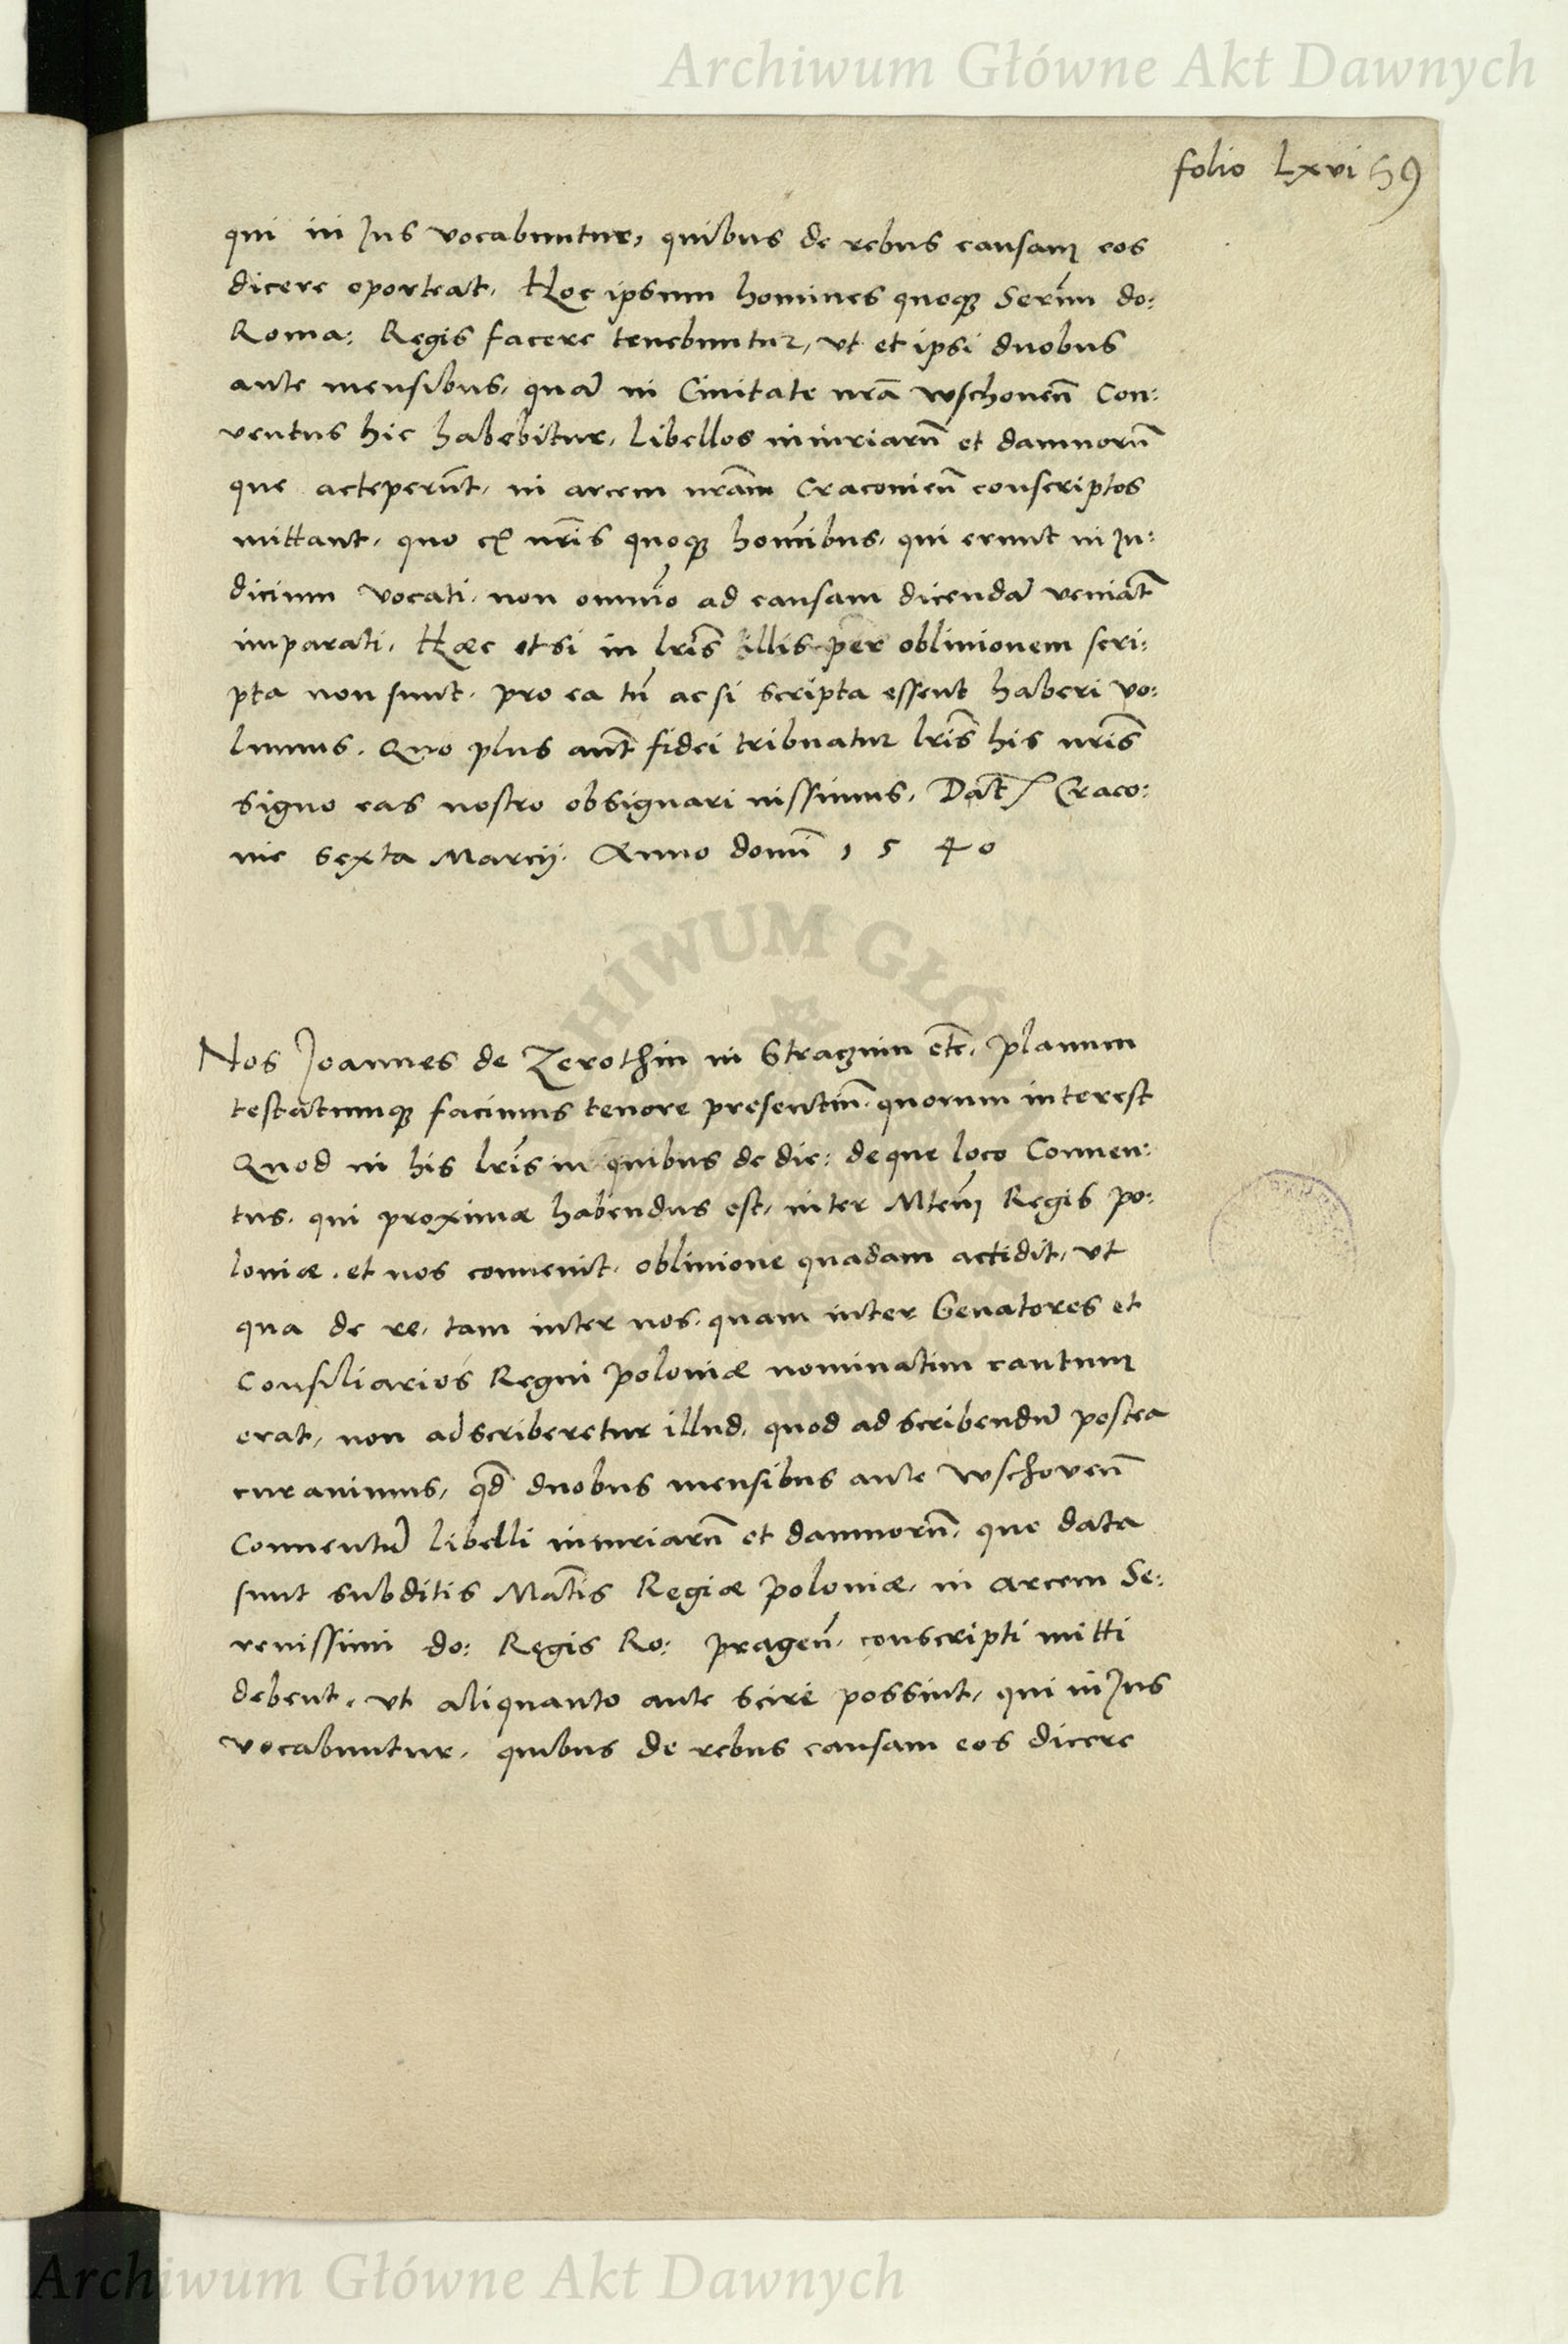 Archiwum Główne Akt Dawnych
folio Lxvi 59
qui in Jus vocabuntur, quibus de rebus causam eos
dicere oporteat. Hoc ipsum homines quoqȝ Serm̄ do:
Roma: Regis facere tenebuntur, vt et ipsi duobus
ante mensibus, quā in Ciuitate nrā wschoueñ Con:
uentus hic habebitur, Libellos iniuriarū et damnorū
que acceperūt, in arcem nrām Cracouieñ conscriptos
mittant, quo ex nrīs quoqȝ homībus, qui erunt in Ju:
dicium vocati, non omnīo ad causam dicendā veniāt
imparati. Hæc etsi in lrīs illis per obliuionem scri:
pta non sunt, pro ea tn̄ ac si scripta essent haberi vo:
lumus. Quo plus aut̄ fidei tribuatur lrīs his nrīs
signo eas nostro obsignari iussimus. Dat̄ Craco:
uie sexta Marcij. Anno domī 1540
Nos Joannes de Zerothin in Straznin etc̄, planum
testatumqȝ facimus tenore presentiū quorum interest
Quod in his lrīs in quibus de die: deque loco Conuen:
tus, qui proximæ habendus est, inter Mtem̄ Regis po:
loniæ, et nos conuenit, obliuione quadam accidit, vt
qua de re, tam inter nos, quam inter Senatores et
Consiliarios Regni poloniæ nominatim cautum
erat, non adscriberetur illud, quod adscribendū postea
curauimus, qd̄ duobus mensibus ante wschoueñ
Conuentū libelli iniuriarū et damnorū, que data
sunt subditis Mat̄is Regiæ poloniæ, in arcem Se:
renissimi do: Regis Ro: prageñ, conscripti mitti
debent, vt aliquanto ante scire possint, qui in Jus
vocabuntur, quibus de rebus causam eos dicere
Archiwum Główne Akt Dawnych